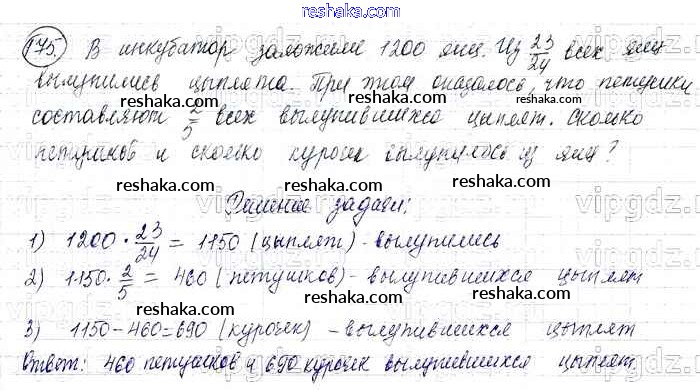 reshaka.com
175. В инкубатор заложили 1200 яиц. Из 23/24 всех яиц
вылупились цыплята. При этом оказалось, что петушки
reshaka.com reshaka.com reshaka.com
составляют 2/5 всех вылупившихся цыплят. Сколько
петушков и сколько курочек вылупилось из яиц?
reshaka.com reshaka.com reshaka.com
Решение задачи:
1) 1200 · 23/24 = 1150 (цыплят) - вылупились
reshaka.com reshaka.com reshaka.com
2) 1150 · 2/5 = 460 (петушков) - вылупившихся цыплят
reshaka.com reshaka.com reshaka.com
3) 1150 - 460 = 690 (курочек) - вылупившихся цыплят
Ответ: 460 петушков и 690 курочек вылупившихся цыплят.
reshaka.com reshaka.com reshaka.com